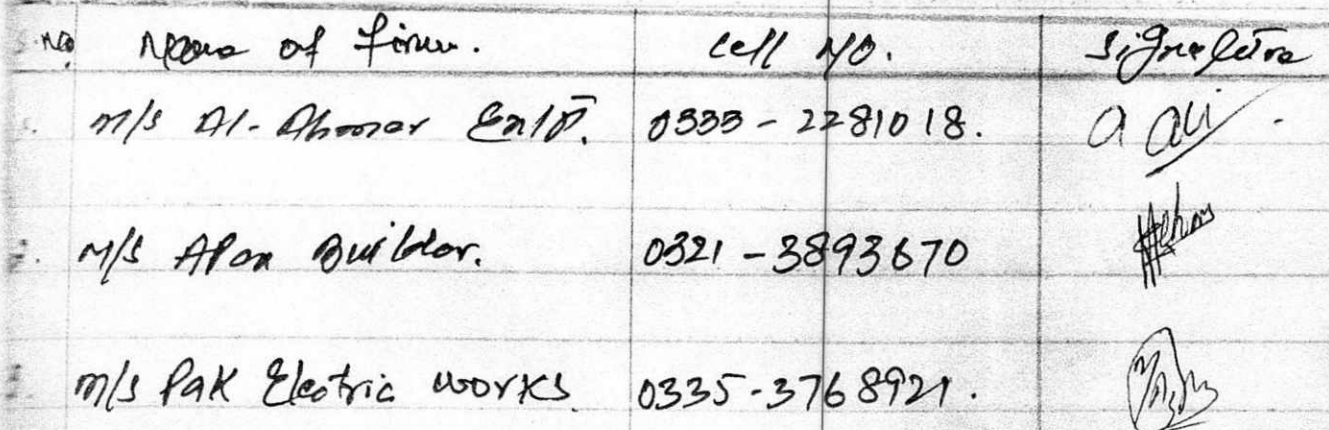 No Name of Firm. Cell No. Signature
M/s Al-Ahmar Entp. 0333-2281018. A Ali
M/s Apex Builder. 0321-3893670
M/s Pak Electric Works 0335-3768921.